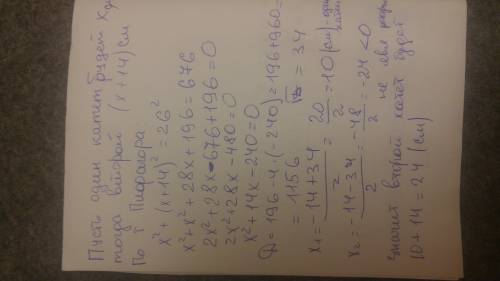 Пусть один катет будет x,
тогда второй (x+14) см
По т Пифагора
x² + (x+14)² = 26²
x² + x² + 28x + 196 = 676
2x² + 28x - 676 + 196 = 0
2x² + 28x - 480 = 0
x² + 14x - 240 = 0
D = 196 - 4·(-240) = 196 + 960 =
= 1156 = 34
x₁ = (-14+34)/2 = 20/2 = 10 (см) - один катет
x₂ = (-14-34)/2 = -48/2 = -24 < 0
не явл
значит второй катет будет
10 + 14 = 24 (см)